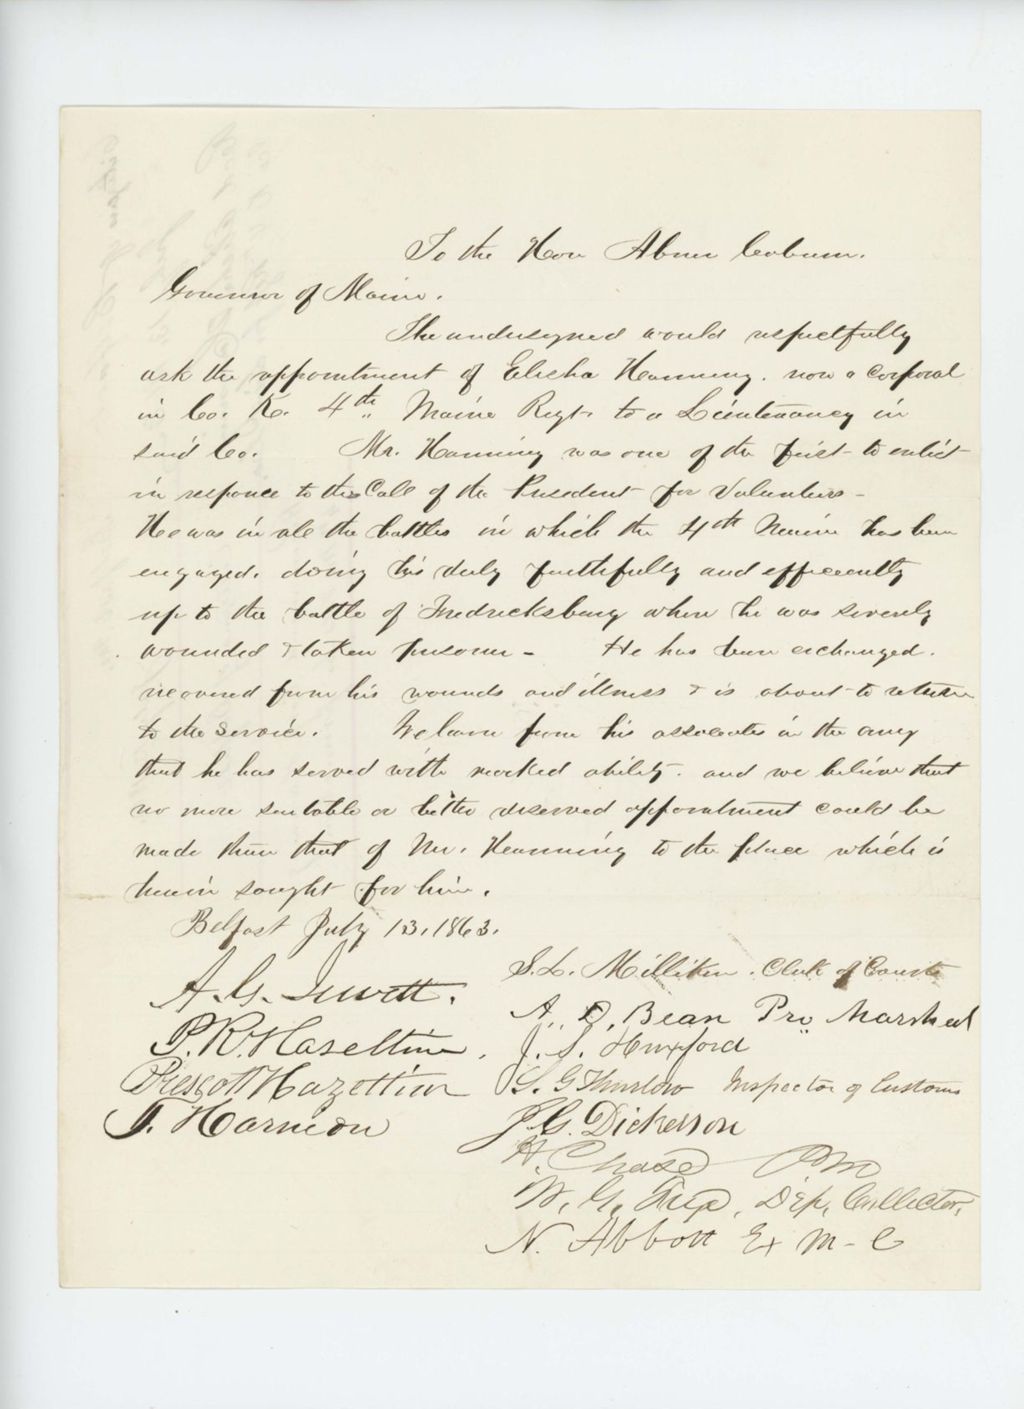 To the Hon Abner Coburn.
Governor of Maine.
The undersigned would respectfully
ask the appointment of Elisha Hanning. now a Corporal
in Co. K. 4th Maine Regt. to a Lieutenancy in
said Co. Mr. Hanning was one of the first to enlist
in responce to the Call of the President for Volunteers -
He was in all the battles in which the 4th Maine has been
engaged. doing his duty faithfully and efficiently
up to the battle of Fredricksburg where he was severely
wounded & taken prisoner - He has been exchanged.
recovered from his wounds and illness & is about to return
to the Service. We learn from his associates in the army
that he has served with marked ability. and we believe that
no more suitable or better deserved appointment could be
made than that of Mr. Hanning to the place which is
herein sought for him.
Belfast July 13, 1863.
A. G. Jewett.
P. R. Hazeltine.
Prescott Hazeltine
T. Harmon
S. L. Milliken. Clerk of Courts
A. D. Bean Pro Marshal
J. S.
S. G Thurlow Inspector of Customs
J. G. Dickerson
H. Chase PM
W. G. Dep, Collector,
N. Abbott Ex M-C